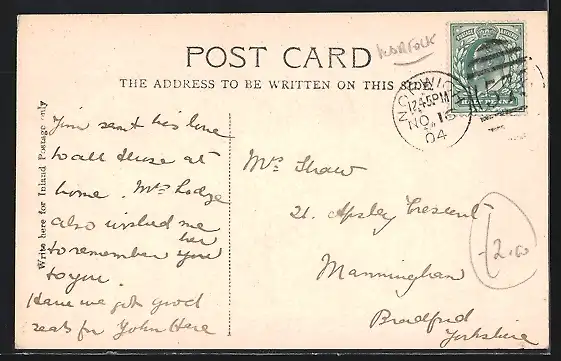 POST CARD
Norfolk
THE ADDRESS TO BE WRITTEN ON THIS SIDE
NORWICH
12.45PM
NO 15
04
HALF PENNY
Write here for Inland Postage only
Jim sent his love
to all those at
home. Mrs Lodge
also wished me
to remember her you
to you.
Have we got good
seats for John Hare
Mrs Shaw
21. Apsley Crescent
Manningham
Bradford
Yorkshire
2.00